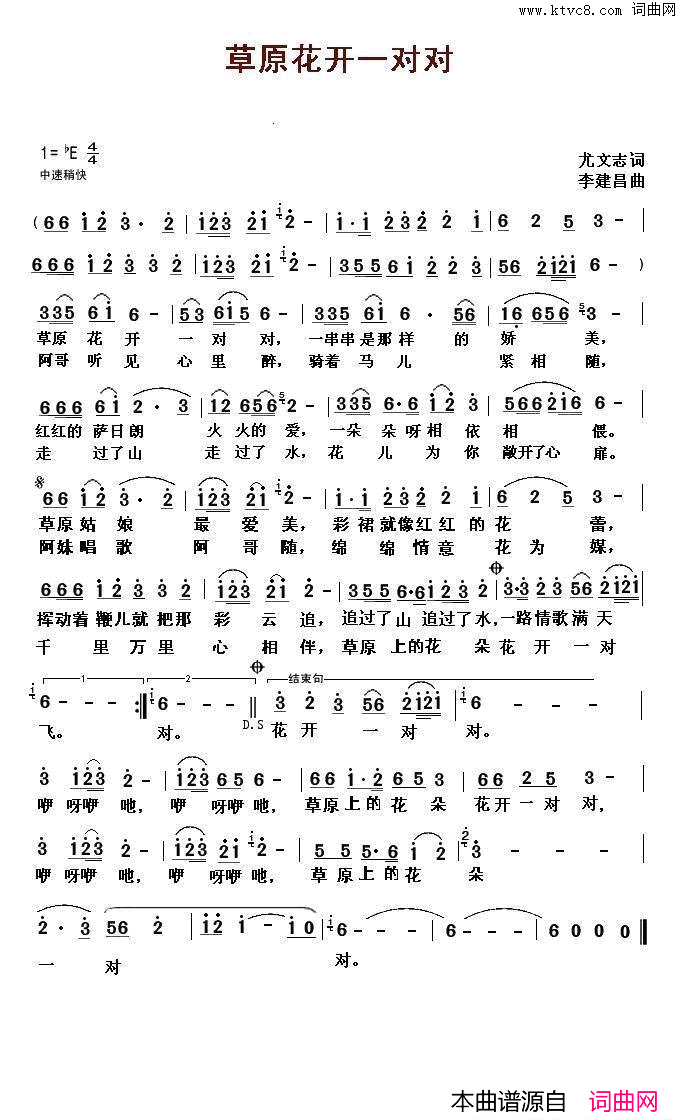 www.ktvc8.com 词曲网
草原花开一对对
1=♭E 4/4
尤文志词
中速稍快
李建昌曲
(666 i2 3· 2 | i23 2i i2 - | i·i 232 2 i | 6 2 5 3 - |
666 i2 3 3 2 | i23 2i i2 - | 355 6i 2 3 2 | 56 2i2i 6 - )
335 6i 6 - | 53 6i5 3 - | 335 6i 6 · 56 | i6 656 53 - |
草原 花 开 一 对 对, 一串串是那样 的 娇 美,
阿哥 听 见 心 里 醉, 骑着 马 儿 紧 相 随,
666 6i 2 · 3 | i2 656 5i2 - | 335 6·6 i2 3 | 566 2i6 6 - |
红红的 萨日朗 火 火的 爱, 一朵 朵呀相 依 相 偎。
走 过了山 走 过了 水, 花 儿 为 你 敞开了心 扉。
66 i2 3 · 2 | i23 2i i2 - | i·i 232 2 i | 6 2 5 3 - |
草原姑 娘 最 爱 美, 彩 裙就像红红 的 花 蕾,
阿妹唱 歌 阿 哥 随, 绵 绵 情 意 花 为 媒,
666 i2 3 3 2 | i23 2i i2 - | 355 6·6i2 3 2 | 3·323 56 2i2i |
挥动着 鞭儿就 把那 彩 云 追, 追过了山 追过了水,一路情歌满 天
千 里 万 里 心 相 伴, 草原 上的花 朵 花 开 一 对
1 2 结束句
i6 - - - :| i6 - - - || 3 2 3 56 2i2i | i6 - - - |
飞。 对。 D.S 花 开 一 对 对。
3 i23 2 - | 3 i23 65 6 - | 66 i·2 65 3 | 66 25 3 - |
咿 呀咿 吔, 咿 呀咿 吔, 草原上的 花 朵 花开 一 对 对,
3 i23 2 - | 3 i23 2i i2 - | 5 5 5·6 i 2 | 23 - - - |
咿 呀咿 吔, 咿 呀咿 吔, 草 原上的 花 朵
2 · 3 56 2 | i2 i - i0 | i6 - - - | 6 - - - | 6 0 0 0 ||
一 对 对。
本曲谱源自 词曲网